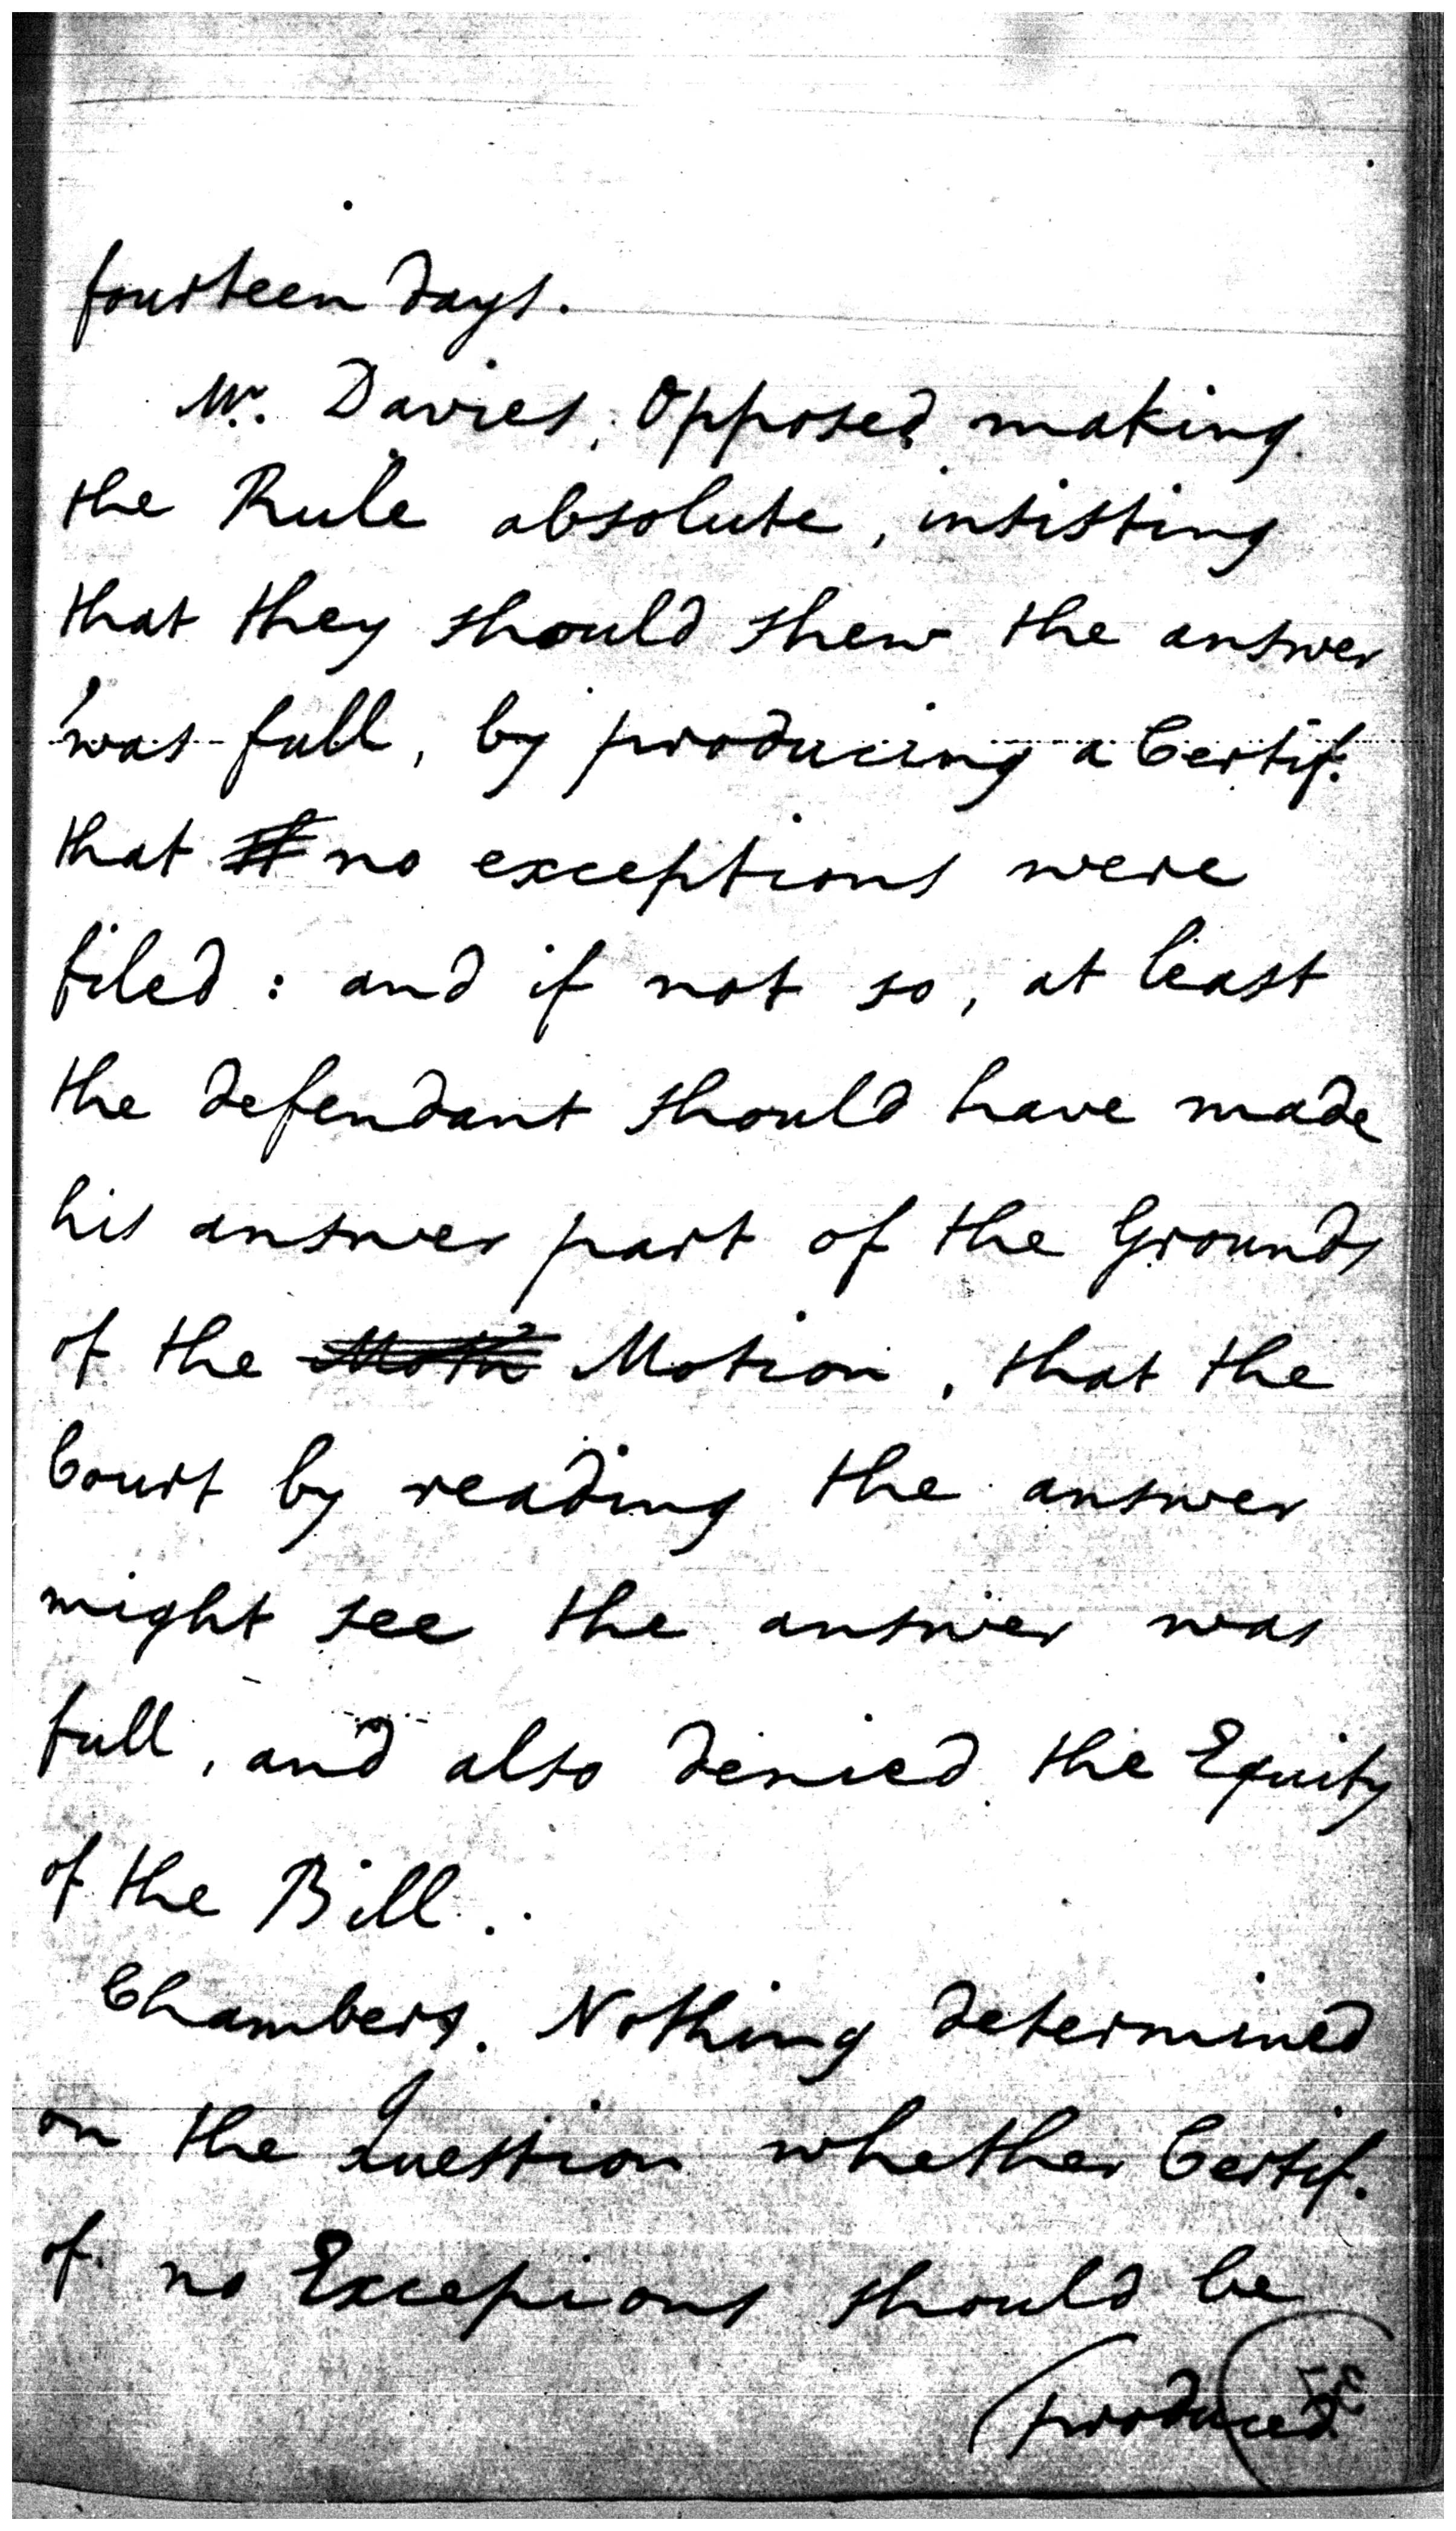 fourteen days.
Mr. Davies, Opposed making
the Rule absolute, insisting
that they should shew the answer
was full, by producing a Certif.
that no exceptions were
filed : and if not so, at least
the defendant should have made
his answer part of the Grounds
of the Motion, that the
Court by reading the answer
might see the answer was
full, and also denied the Equity
of the Bill.
Chambers. Nothing determined
on the Question whether Certif.
of no Excepions should be
(produced